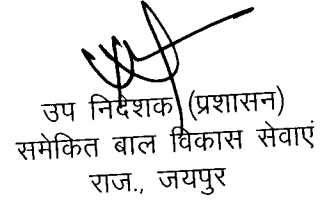 उप निदेशक (प्रशासन)
समेकित बाल विकास सेवाएं
राज., जयपुर